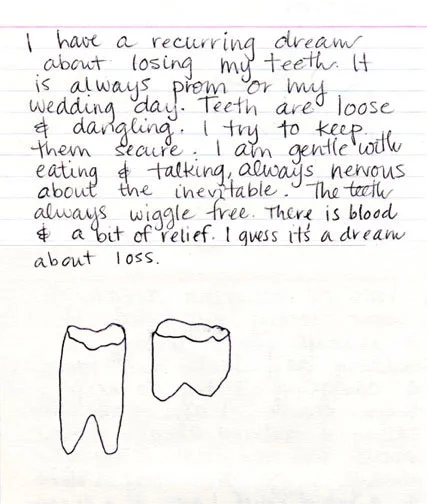 I have a recurring dream
about losing my teeth. It
is always prom or my
wedding day. Teeth are loose
& dangling. I try to keep
them secure. I am gentle with
eating & talking, always nervous
about the inevitable. The teeth
always wiggle free. There is blood
& a bit of relief. I guess it's a dream
about loss.